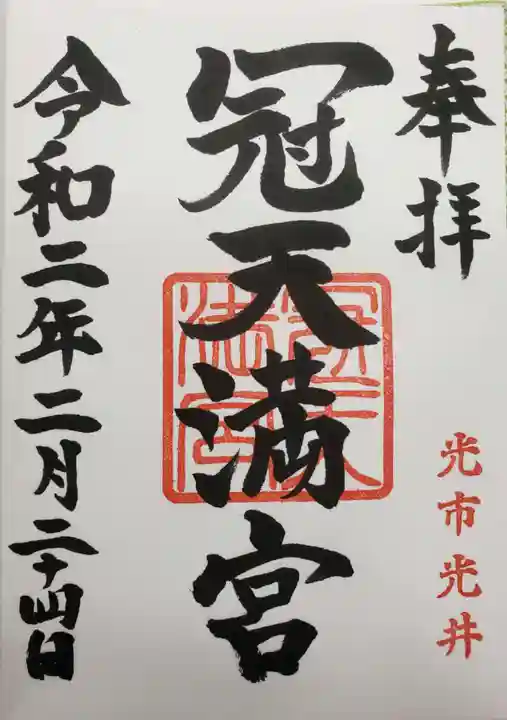 奉拝
光市光井
冠天満宮
冠天満宮
令和二年二月二十四日